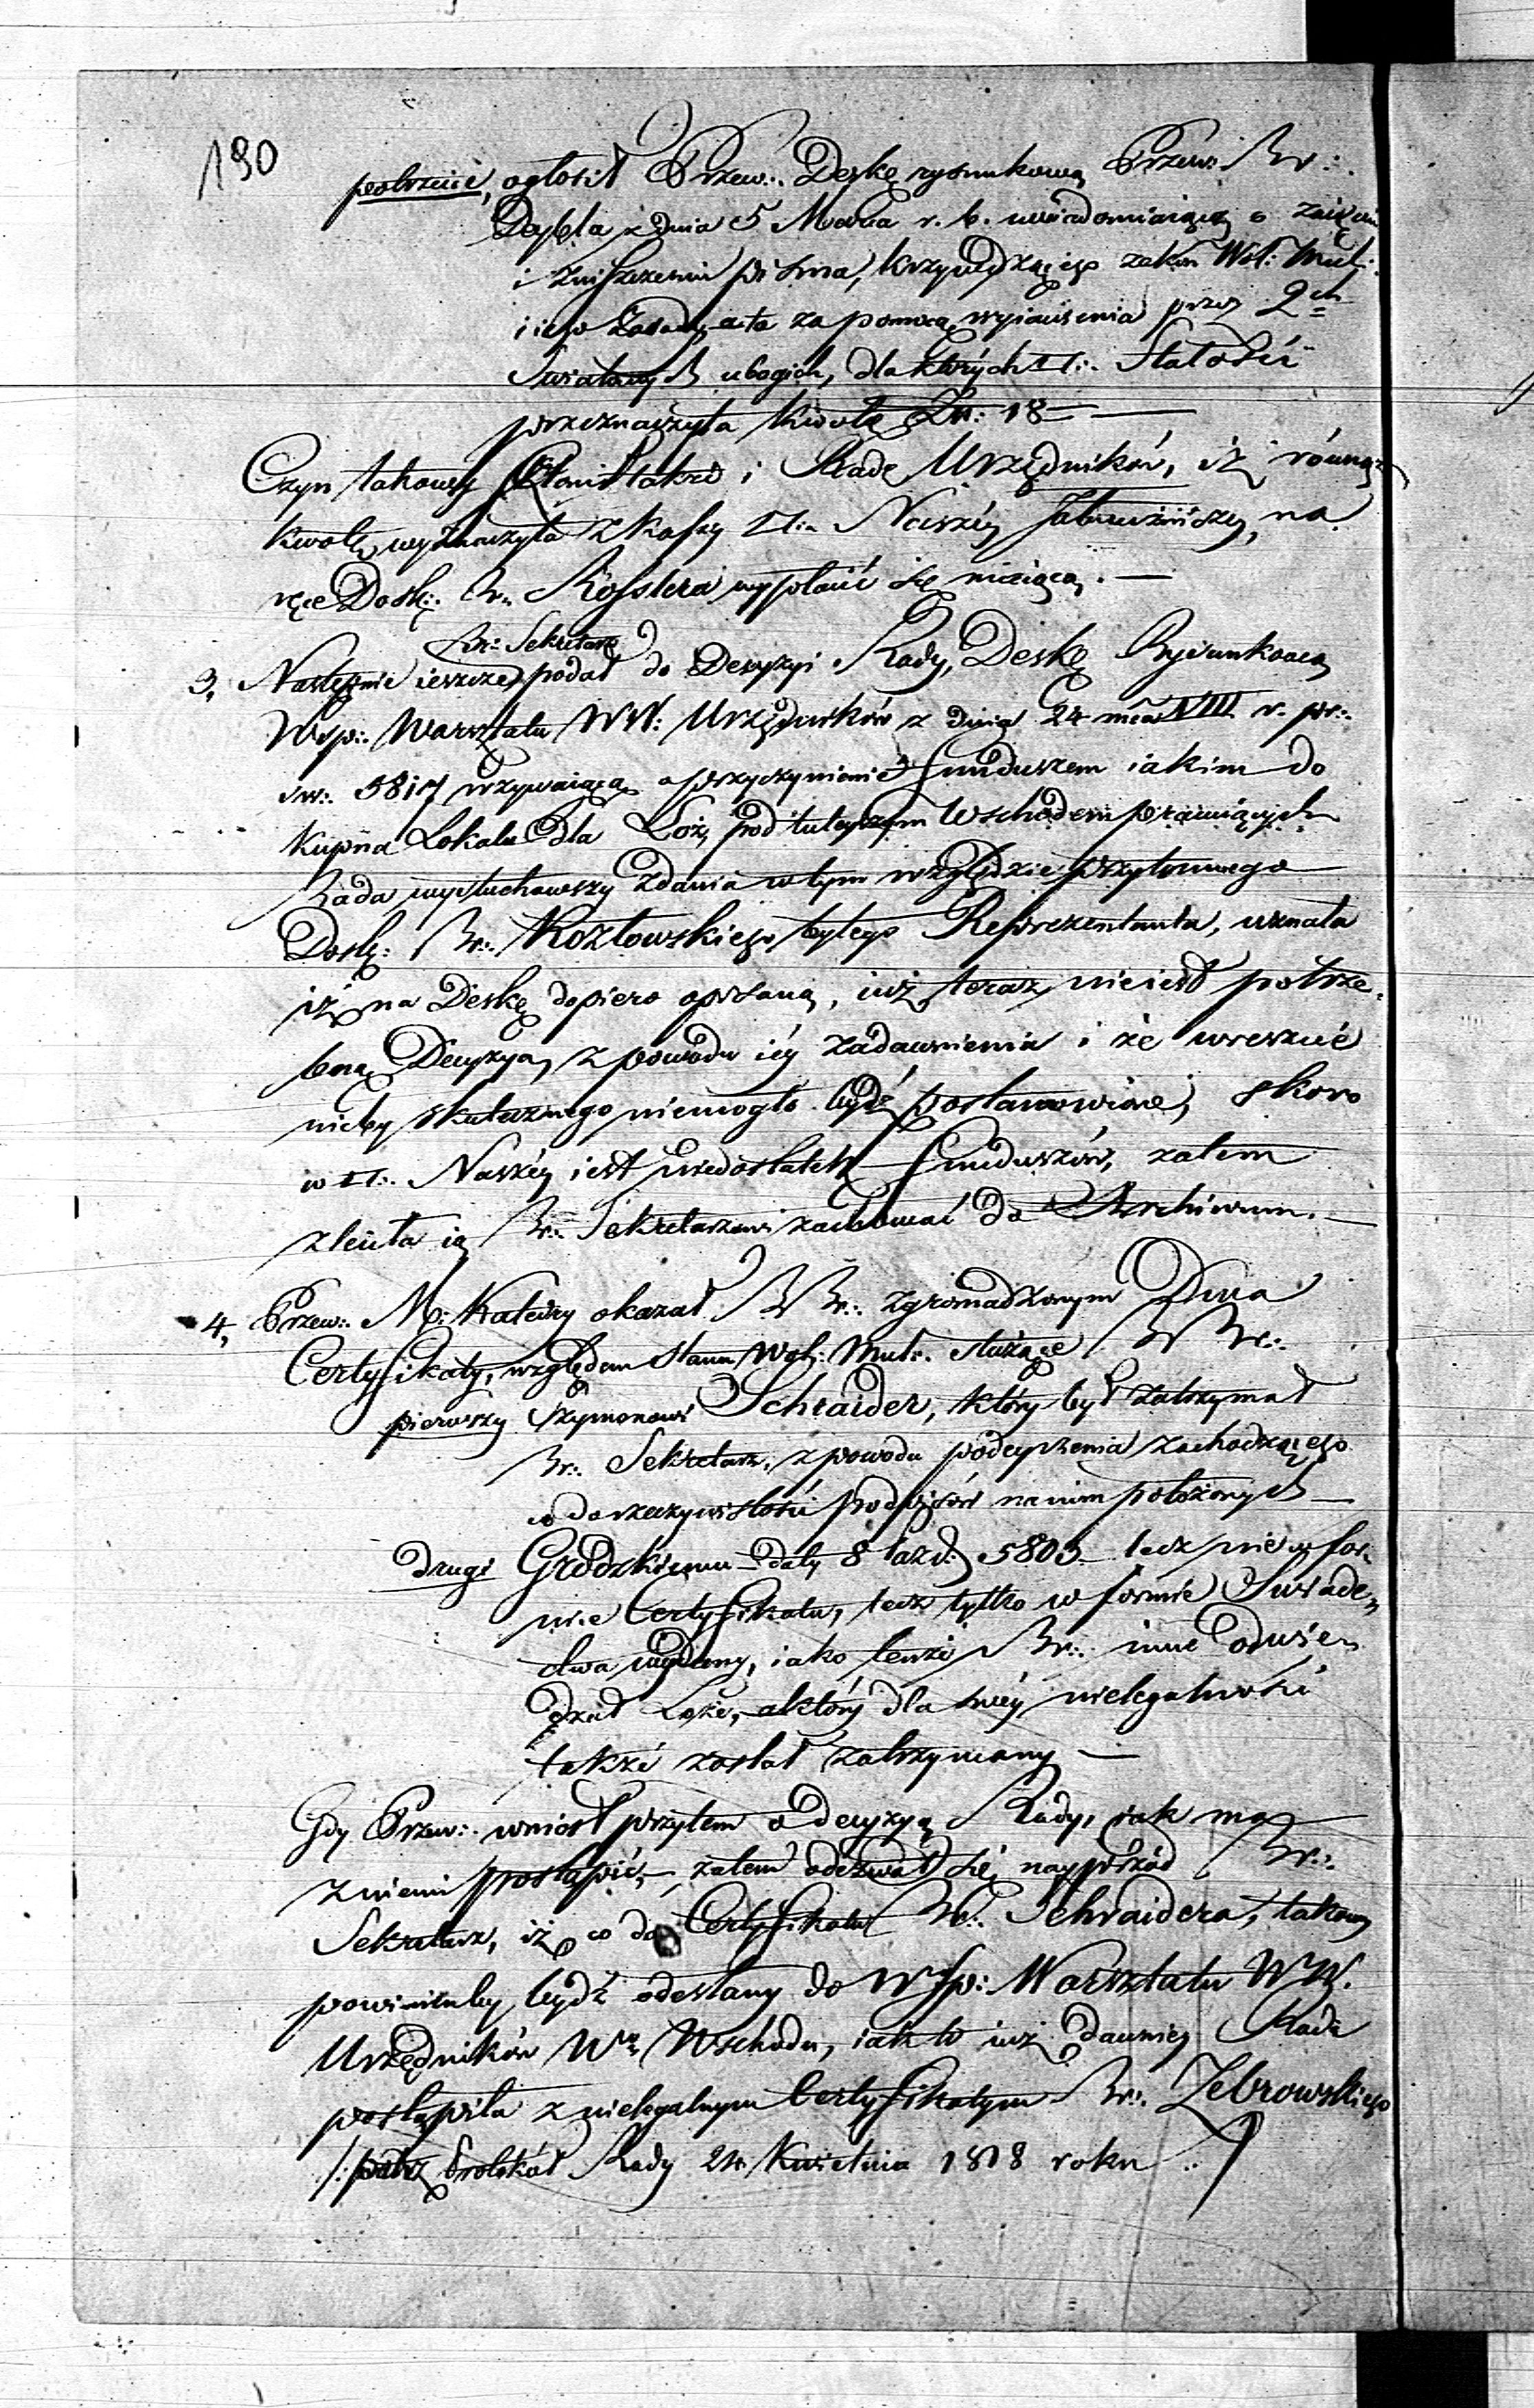 190
powtórnie, ogłosił Przew:. Deskę rysunkową Przew: Br:.
Deybla z dnia 5 Marca r. b. uwiadomiaiącą o zaięciu
i zniszczeniu pisma, krzywdzącego zakon Wol: Mul:.
i iego zasady, a to za pomocą wyiawienia przez 2ch
Światowych ubogich, dla których □:. Stałości
przeznaczyła kwotę Zł: 18 —
Czyn takowy skłonił także i Radę Urzędników, iż równąż
kwotę wyznaczyła z Kassy □:. Naszéy Jałmużniczey, na
ręce Dosk:. Br. Kösslera wypłacić się maiącą. —
Br:. Sekretarz
3, Następnie ieszcze podał do Decyzyi Rady, Deskę Rysunkową
Wsp:. Warsztatu WW: Urzędników z dnia 24 mca VIII r. pr:.
św:. 5817 wzywaiącą o przyczynienie funduszem iakim do
Kupna Lokalu dla Loż, pod tuteyszym Wschodem pracuiących
Rada wysłuchawszy zdania w tym względzie przytomnego
Dosk: Br:. Kozłowskiego, byłego Reprezentanta, uznała
iż na Deskę dopiero opisaną, iuż teraz nieiest potrze-
bną Decyzya, z powodu iéy zadawnienia i że wreszcie
nicby skutecznego niemogło bydź postanowione, skoro
w □:. Naszéy iest niedostatek funduszów, zatem
zleciła ią Br:. Sekretarzowi zachować do Archiwum. —
4, Przew:. M: Katedry okazał BBr:. zgromadzonym Dwa
Certyfikaty, względem stanu Wol: Mul:. służące BBr:.
pierwszy Szymonowi Schraider, który był zatrzymał
Br:. Sekretarz, z powodu podeyrzenia zachodzącego
co do rzeczywistości podpisów na nim położonych —
drugi Grodzkiemu daty 8 Paźd: 5805 lecz nie w for-
mie Certyfikatu, lecz tylko w formie Świade-
ctwa wydany, iako tenże Br:. inne odwie-
dzał Loże, a który dla swéy nielegalności
także został zatrzymany —
Gdy Przew:. wniósł przytem o decyzyą Rady, iak ma
z niemi postąpić, — zatem odezwał się nayprzód Br:.
Sekretarz, iż co do Certyfikatu Br:. Schraidera, takowy
powinienby bydź odesłany do Wsp: Warsztatu WW.
Urzędników Wgo Wschodu, iak to iuż dawniey Rada
postąpiła z nielegalnym Certyfikatym Br:. Żebrowskiego
/: patrz Protokół Rady 24 Kwietnia 1818 roku :/